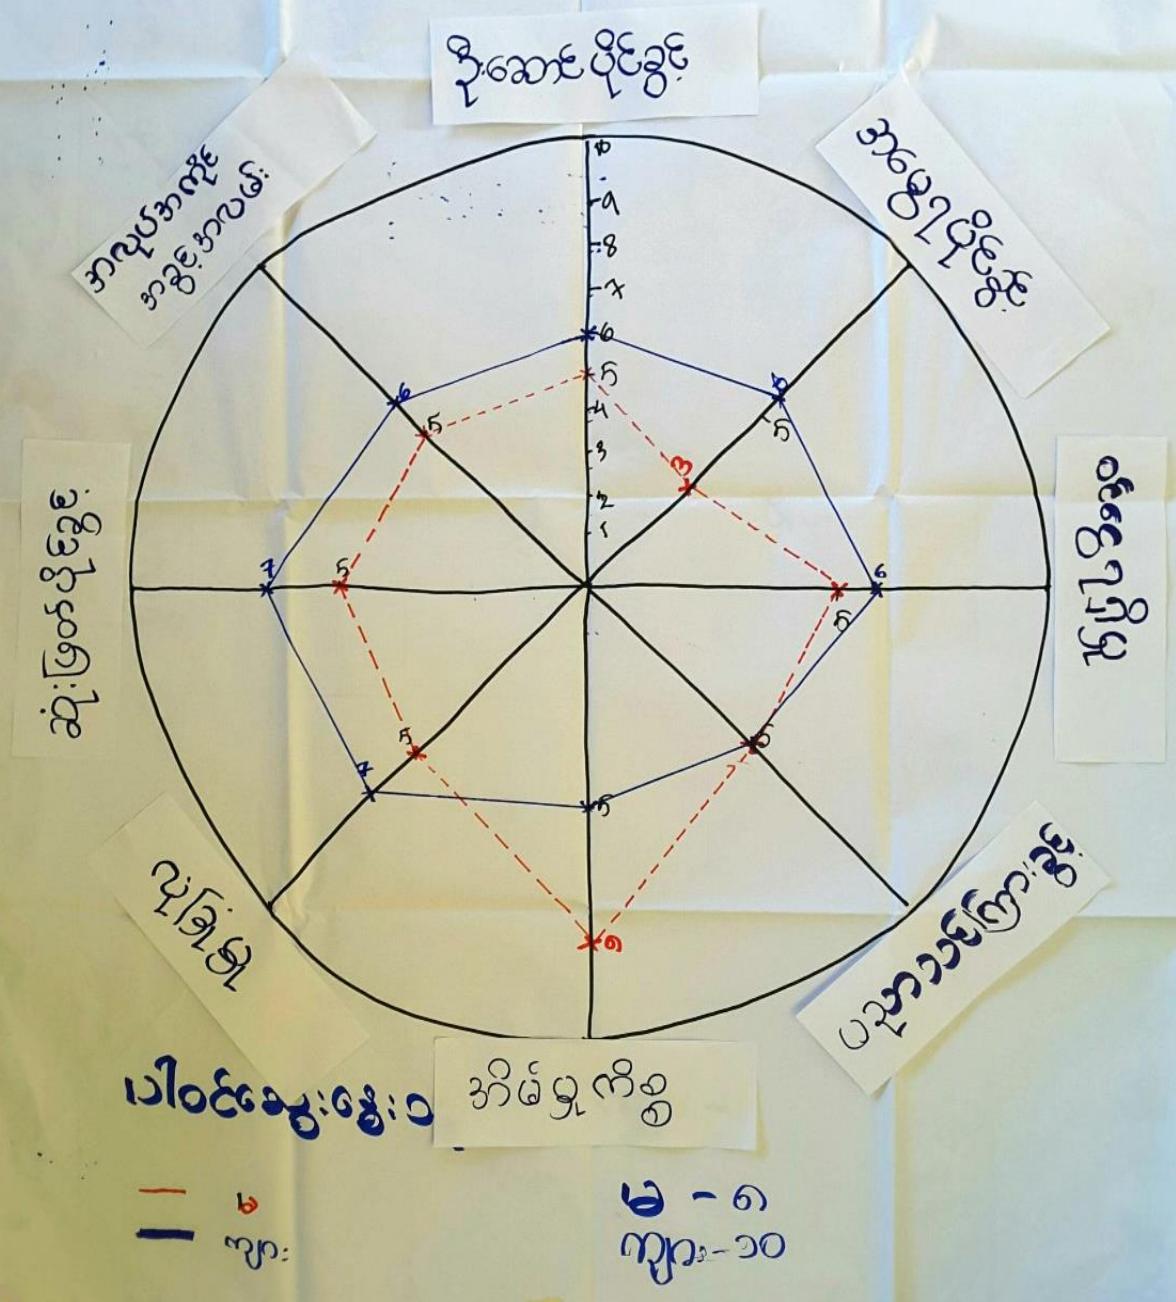 ဦးဆောင်ပိုင်ခွင့်
အမွေပိုင်ခွင့်
ဝင်ငွေရရှိမှု
အိမ်မှုကိစ္စ
လုံခြုံမှု
အလုပ်အကိုင်
အခွင့်အလမ်း
10
9
8
7
6
5
4
3
2
1
6
5
3
6
5
5
5
9
7
5
7
5
6
5
ပါဝင်ဆွေးနွေးသ
မ
ကျား
မ - ၈
ကျား - ၁၀